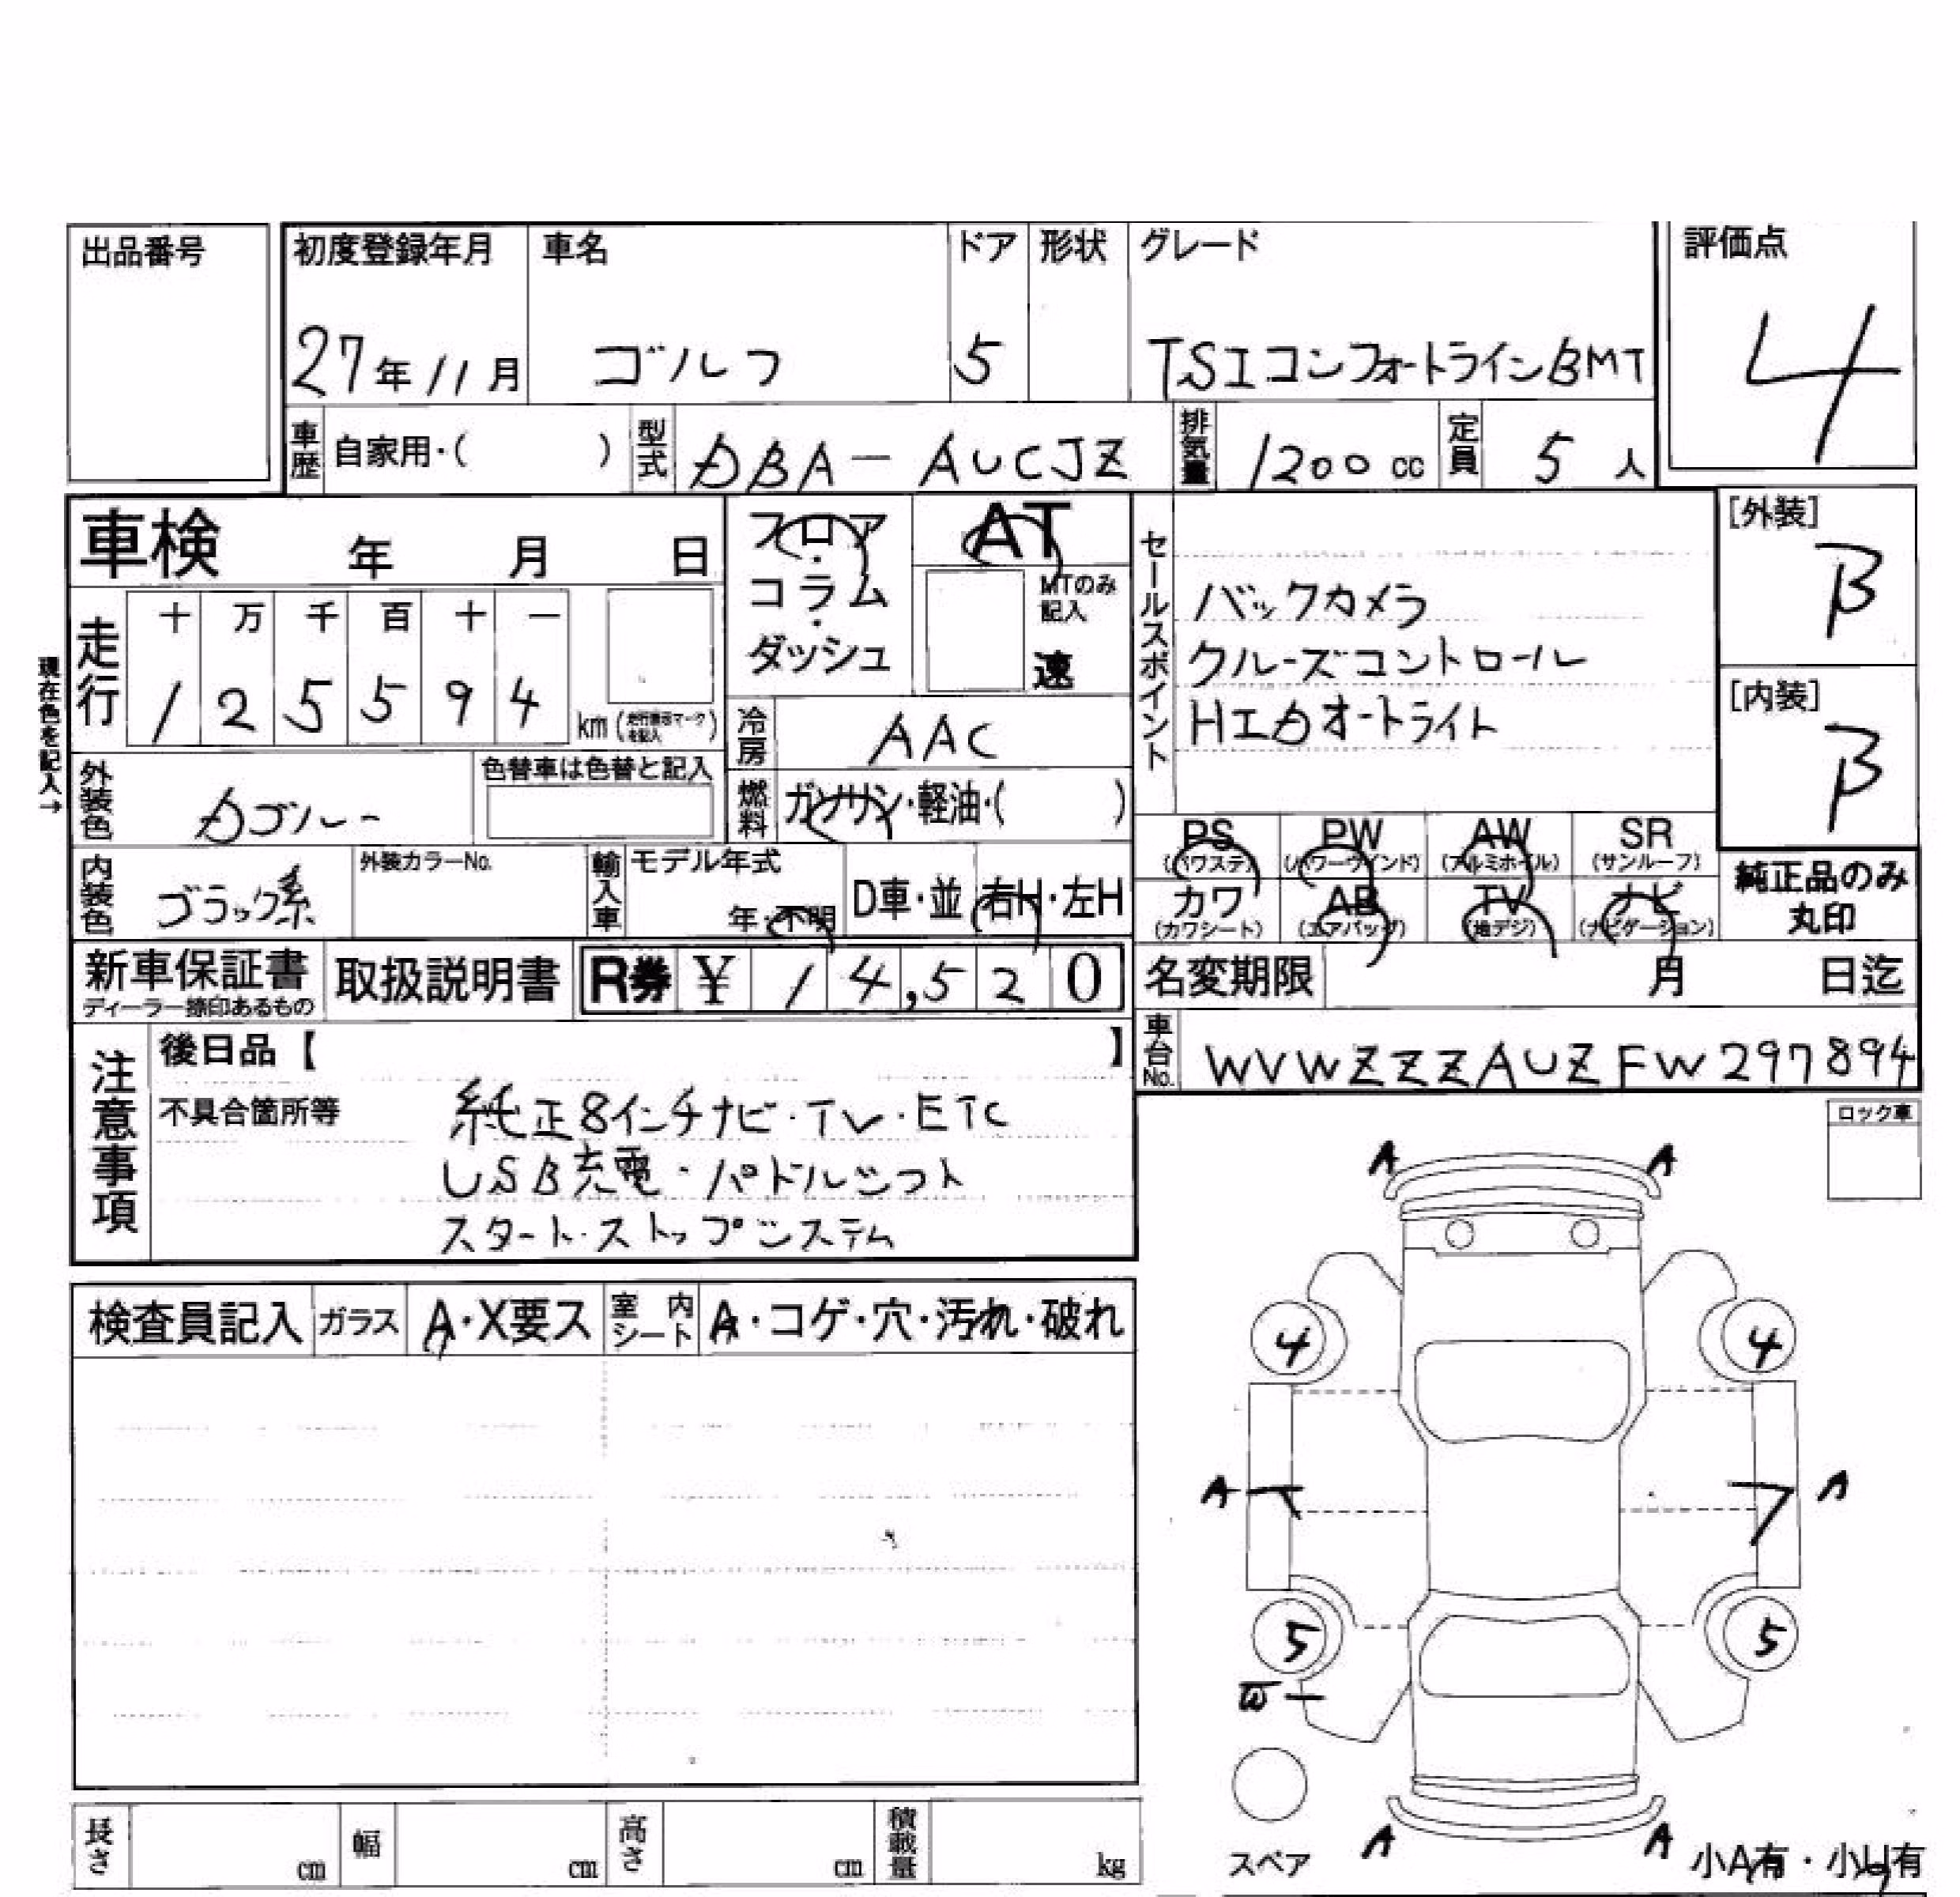 出品番号
初度登録年月 車名 ドア 形状 グレード 評価点
27年11月 ゴルフ 5 TSIコンフォートラインBMT 4
車歴 自家用・( ) 型式 DBA-AUCJZ 排気量 1200cc 定員 5人
車検 年 月 日
フロア・コラム・ダッシュ
AT
MTのみ記入
速
セールスポイント
バックカメラ
クルーズコントロール
HIDオートライト
[外装]
B
[内装]
B
現在色を記入→
走行 十 万 千 百 十 一
1 2 5 5 9 4 km (走行表示マークを記入)
冷房 AAC
外装色
色替車は色替と記入
燃料 ガソリン・軽油・( )
PS (パワステ) PW (パワーウインド) AW (アルミホイル) SR (サンルーフ)
カワ (カワシート) AB (エアバッグ) TV (地デジ) ナビ (ナビゲーション)
純正品のみ丸印
内装色 ブラック系 外装カラーNo. 輸入車 モデル年式 年・不明 D車・並 右H・左H
新車保証書 取扱説明書 R券 ¥ 14,520 名変期限 月 日迄
ディーラー捺印あるもの
車台No. WVWZZZAUZFW297894
注意事項
後日品【 】
不具合箇所等 純正8インチナビ・TV・ETC
USB充電・パドルシフト
スタート・ストップシステム
ロック車
検査員記入 ガラス A・X要ス 室内シート A・コゲ・穴・汚れ・破れ
A A
4 4
A A
5 5
W
スペア
A A
小A有・小U有
長さ cm 幅 cm 高さ cm 積載量 kg